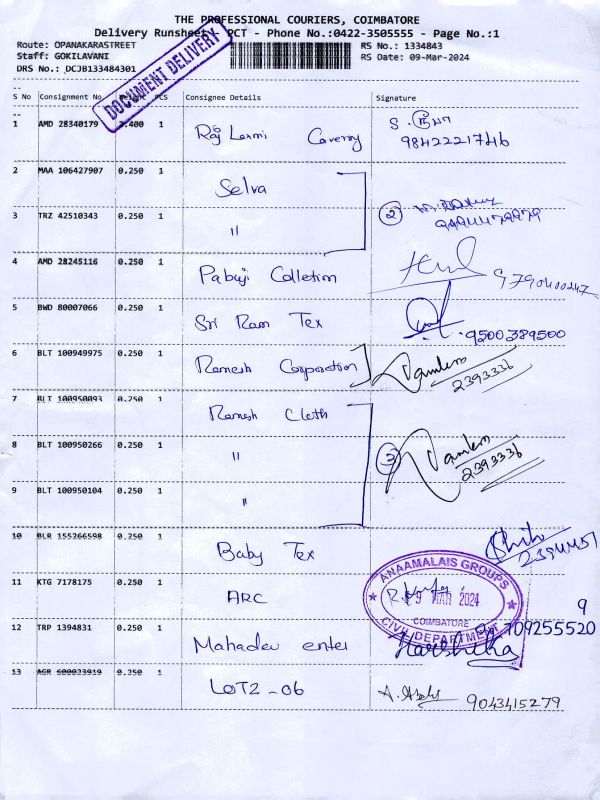 THE PROFESSIONAL COURIERS, COIMBATORE
Delivery Runsheet - PCT - Phone No.:0422-3505555 - Page No.:1
Route: OPANAKARASTREET
Staff: GOKILAVANI
DRS No.: DCJB133484301
RS No.: 1334843
RS Date: 09-Mar-2024
DOCUMENT DELIVERY
S No Consignment No. PCS Consignee Details Signature
1 AMD 28340179 .400 1 Raj Laxmi 9842221746
2 MAA 106427907 0.250 1 Selva
3 TRZ 42510343 0.250 1 " 2
4 AMD 28245116 0.250 1 Pabuji Colletion 9790400247
5 BWD 80007066 0.250 1 Sri Ram Tex 9500389500
6 BLT 100949975 0.250 1 Ramesh Corporation 2393336
7 BLT 100950093 0.250 1 Ramesh Cloth
8 BLT 100950266 0.250 1 " 3 2393336
9 BLT 100950104 0.250 1 "
10 BLR 155266598 0.250 1 Baby Tex
11 KTG 7178175 0.250 1 ARC
ANAAMALAIS GROUPS
9 MAR 2024
COIMBATORE
CIVIL DEPARTMENT
12 TRP 1394831 0.250 1 Mahadev enter Harshitha 9709255520
13 AGR 600023919 0.250 1 LOT2-06 9043415279